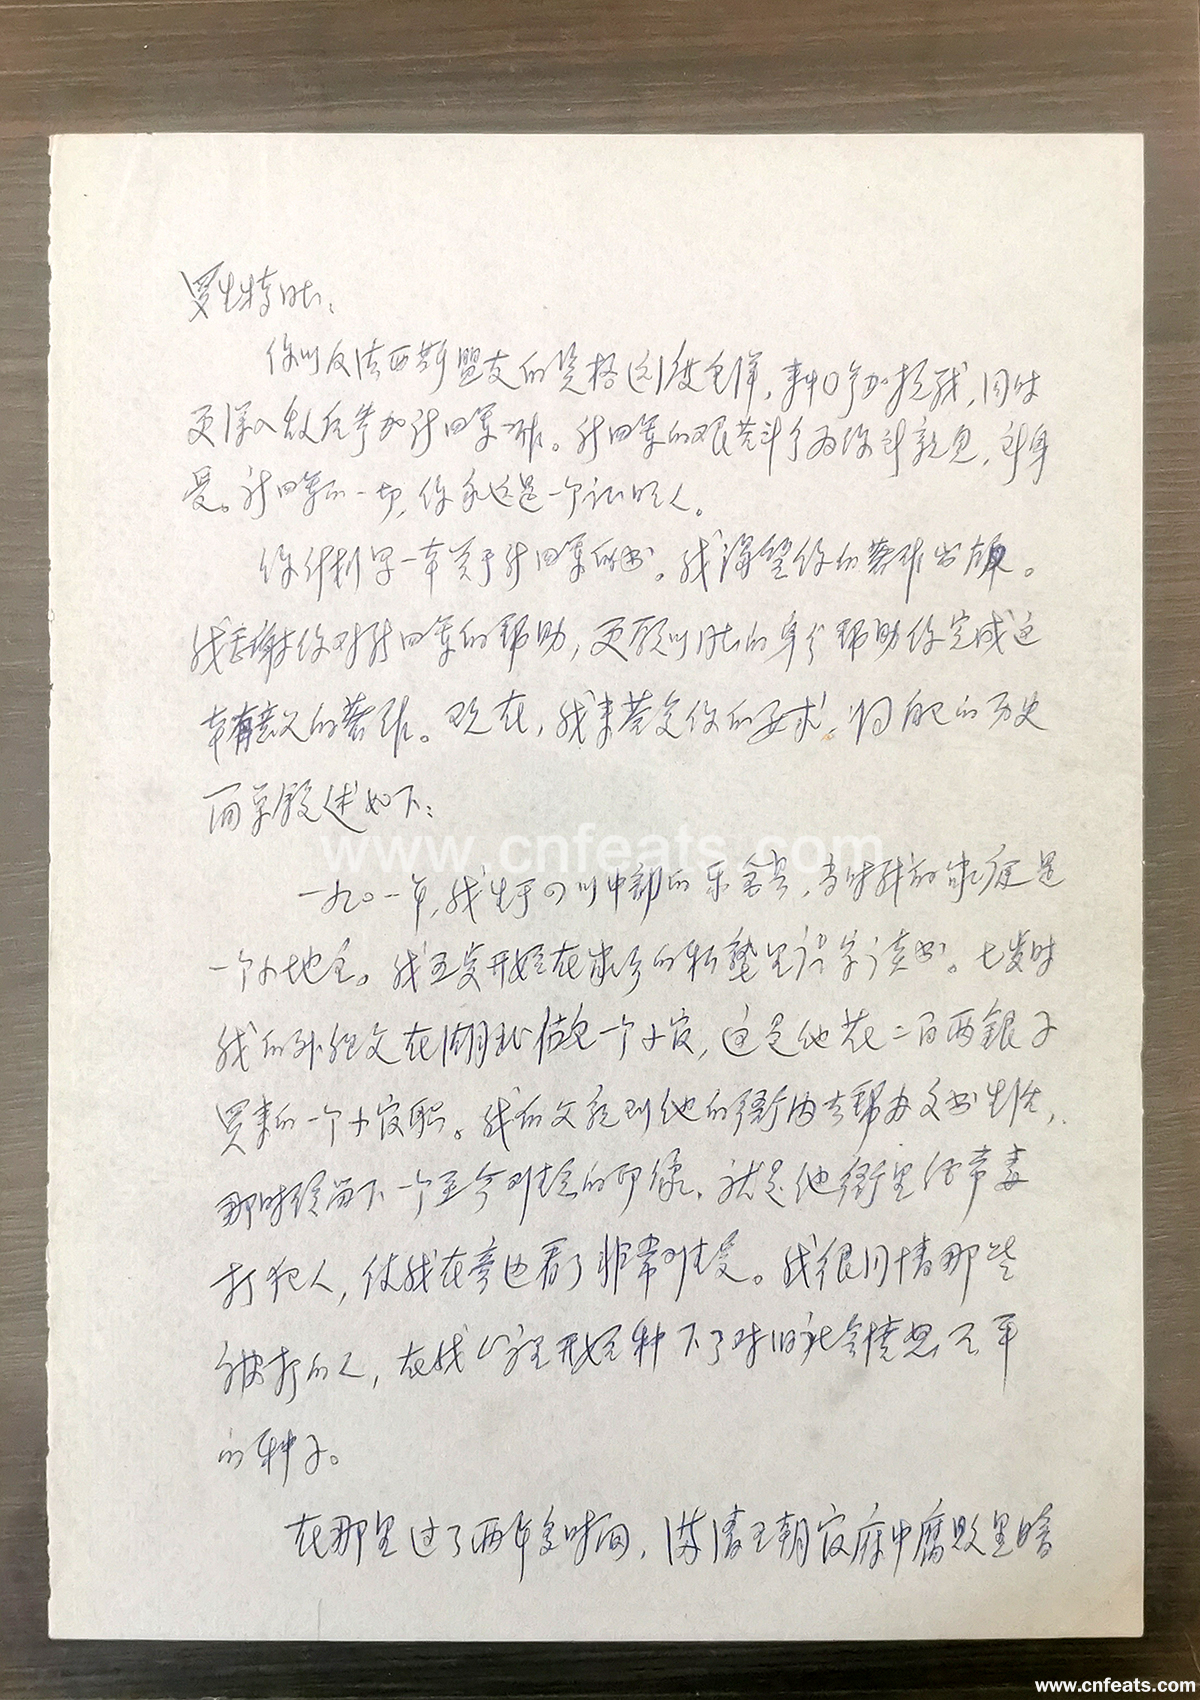 罗生特同志：
你以反法西斯盟友的资格远渡重洋，来中参加抗战，同时
更深入敌后参加新四军工作。新四军的艰苦斗争为你所亲见，所身
受。新四军的一切，你永远是一个证明人。
你计划写一本关于新四军的书。我渴望你的著作出版。
我感谢你对新四军的帮助，更愿以同志的身分帮助你完成这
本有意义的著作。现在，我来答复你的要求，将自己的历史
简单叙述如下：
www.cnfeats.com
一九〇一年，我生于四川中部的乐至县，当时我的家庭是
一个小地主。我五岁开始在家乡的私塾里识字读书。七岁时
我的外祖父在湖北做过一个小官，这是他花二百两銀子
买来的一个小官职。我的父亲到他的衙内去帮办文书生活，
那时候留下一个至今难忘的印像，就是他衙里经常毒
打犯人，使我在旁边看了非常难受。我很同情那些
被打的人，在我心里开始种下了对旧社会愤怒不平
的种子。
在那里过了两年多时间，满清王朝官府中腐败黑暗
www.cnfeats.com